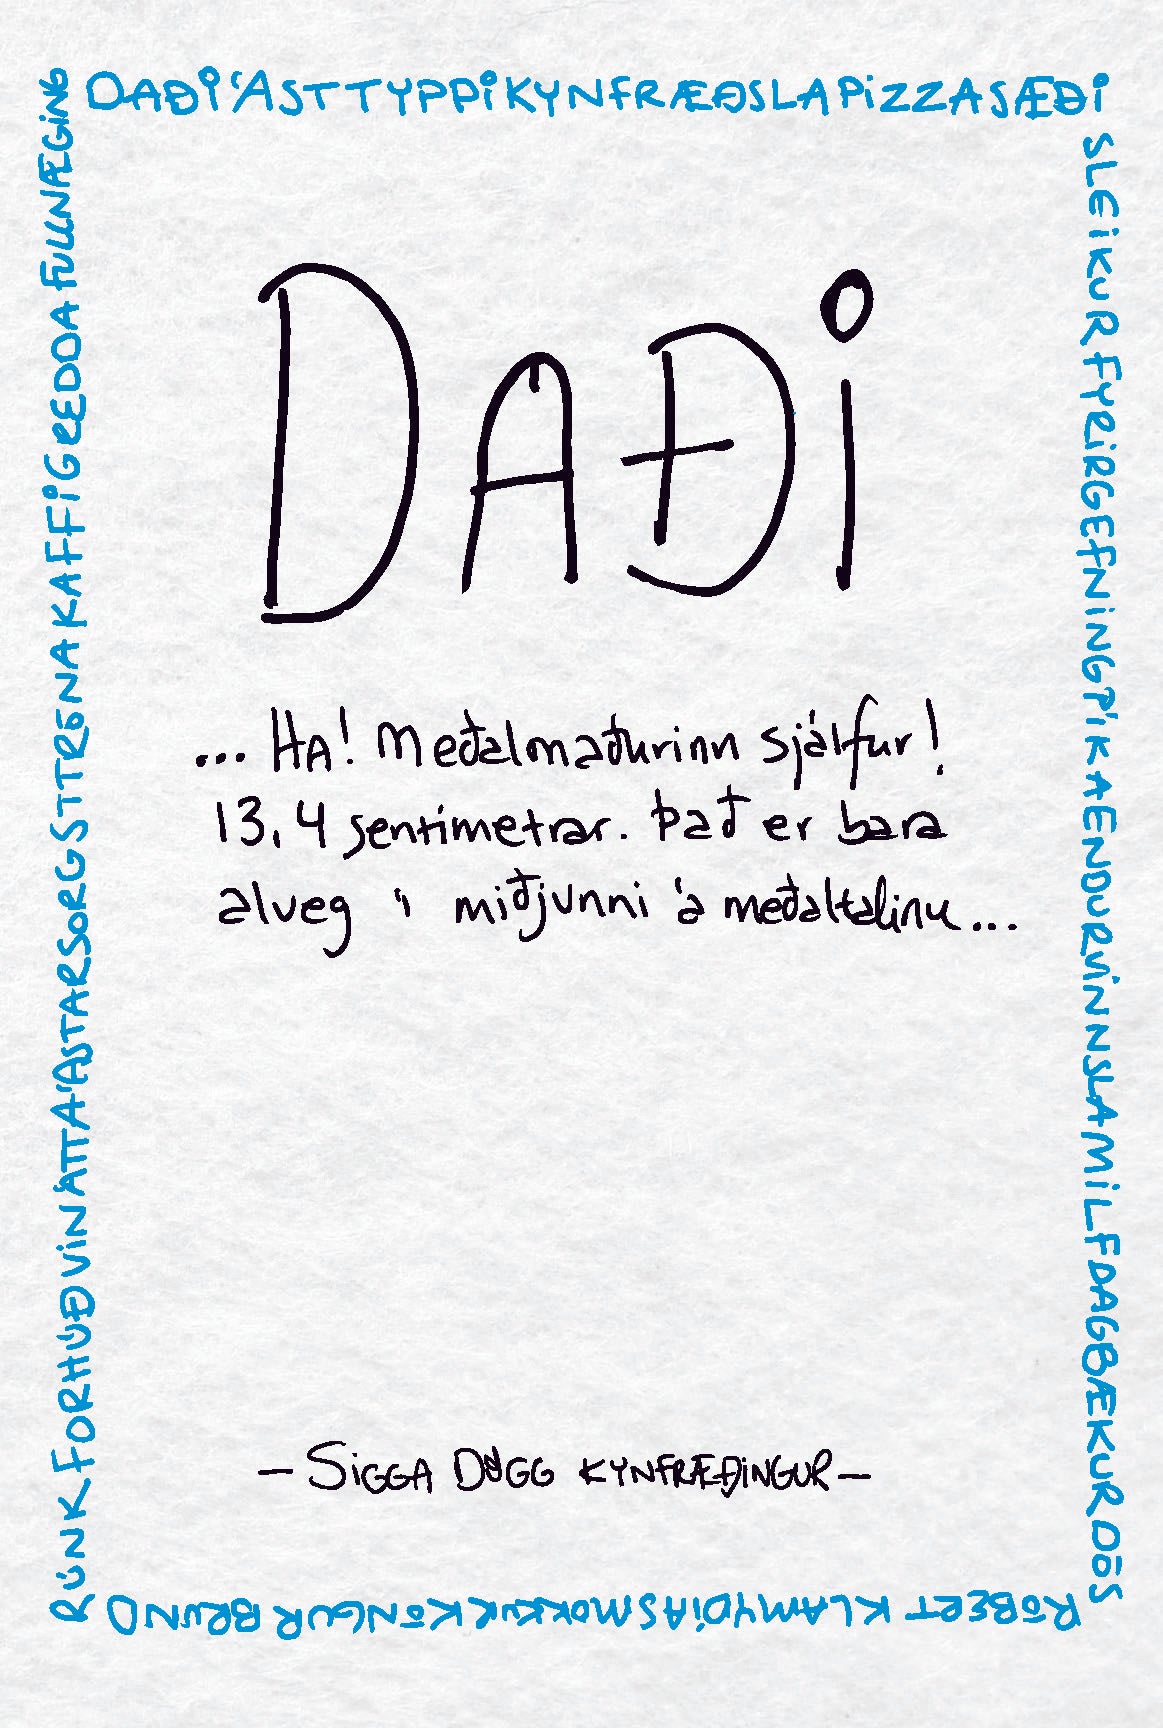 DAÐI ÁST TYPPI KYNFRÆÐSLA PIZZA SÆÐI
SLEIKUR FYRIRGEFNING PÍKA ENDURVINNSLA MILF DAGBÆKUR DÓS
RÓBERT KLAMYDÍA SMOKKUR KÓNGUR BRUND
RÚNK FORHÚÐ VINÁTTA ÁSTARSORG STTRÓNA KAFFI GREDDA FULLNÆGING
DAÐI
... HA! Meðalmaðurinn sjálfur!
13,4 sentímetrar. Það er bara
alveg í miðjunni á meðaltalinu...
— SIGGA DÖGG KYNFRÆÐINGUR —